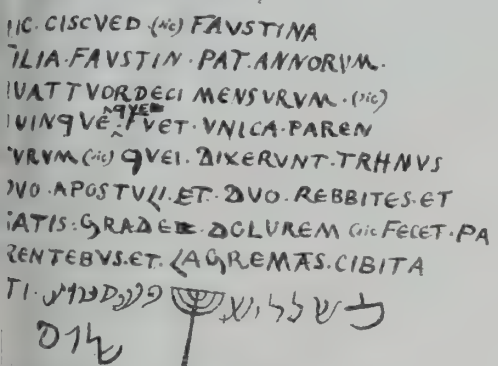 IIC. CISCVED (sic) FAVSTINA
ILIA. FAVSTIN. PAT. ANNORVM.
VATTVORDECI MENSVRVM. (sic)
VINQVE QVE FVET. VNICA. PAREN
VRVM (sic) QVEI. DIXERVNT. TRHNVS
DVO. APOSTVLI. ET. DVO. REBBITES. ET
ATIS. GRADE DOLVREM (sic FECET. PA
RENTEBVS. ET. LAGREMAS. CIBITA
TI.
שלום